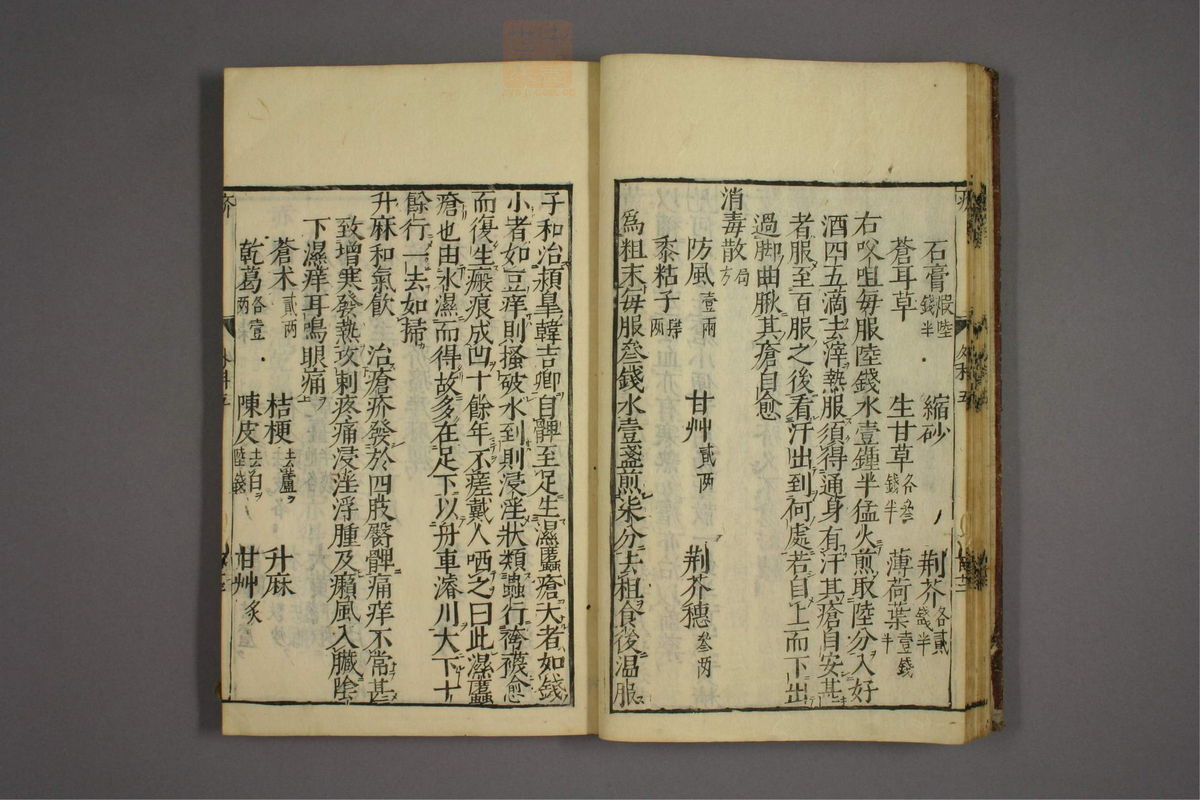 石膏煆陸錢半 縮砂 荆芥各貳錢半
蒼耳草 生甘草各叄錢半 薄荷葉壹錢半
右㕮咀每服陸錢水壹鍾半猛火煎取陸分入好
酒四五滴去滓熱服須得通身有汗其瘡自安甚
者服至百服之後看汗出到何處若自上而下出
過脚曲腘其瘡自愈
消毒散局方
防風壹兩 甘艸貳两 荆芥穗叄两
黍粘子肆两
爲粗末每服叄錢水壹盞煎柒分去柤食後温服
子和治頴臯韓吉卿自髀至足生濕䘌瘡大者如錢
小者如豆痒則搔破水到則浸淫狀類蟲行袴襪愈
而復生瘢痕成凹十餘年不瘥戴人哂之曰此濕䘌
瘡也由水濕而得故多在足下以舟車濬川大下十
餘行一去如掃
升麻和氣飲 治瘡疥發於四肢臀髀痛痒不常甚
致增寒發熱攻刺疼痛浸淫浮腫及癩風入臟陰
下濕痒耳鳴眼痛
蒼术貳两 桔梗去蘆 升麻
乾葛各壹两 陳皮去白陸錢 甘艸炙